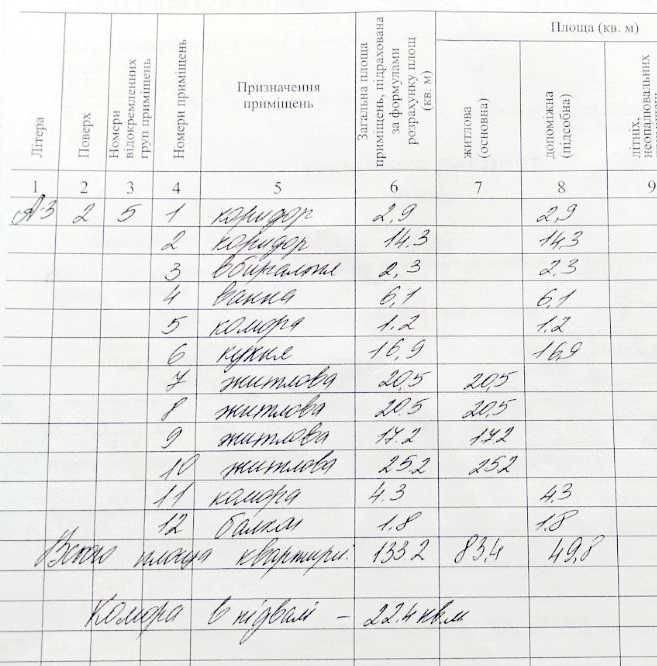 Площа (кв. м)
Літера
Поверх
Номери відокремленних груп приміщень
Номери приміщень
Призначення приміщень
Загальна площа приміщень, підрахована за формулами розрахунку площ (кв. м)
житлова (основна)
допоміжна (підсобна)
літніх, неопалювальних
1 2 3 4 5 6 7 8 9
А-3 2 5 1 коридор 2,9 2,9
2 коридор 14.3 14,3
3 вбиральня 2,3 2.3
4 ванна 6,1 6,1
5 комора 1.2 1.2
6 кухня 16,9 16,9
7 житлова 20,5 20,5
8 житлова 20.5 20,5
9 житлова 17.2 172
10 житлова 25.2 252
11 комора 4.3 4.3
12 балкон 1.8 1.8
Всього площа квартири: 133.2 83,4 49,8
Комора в підвалі - 22.4 кв.м